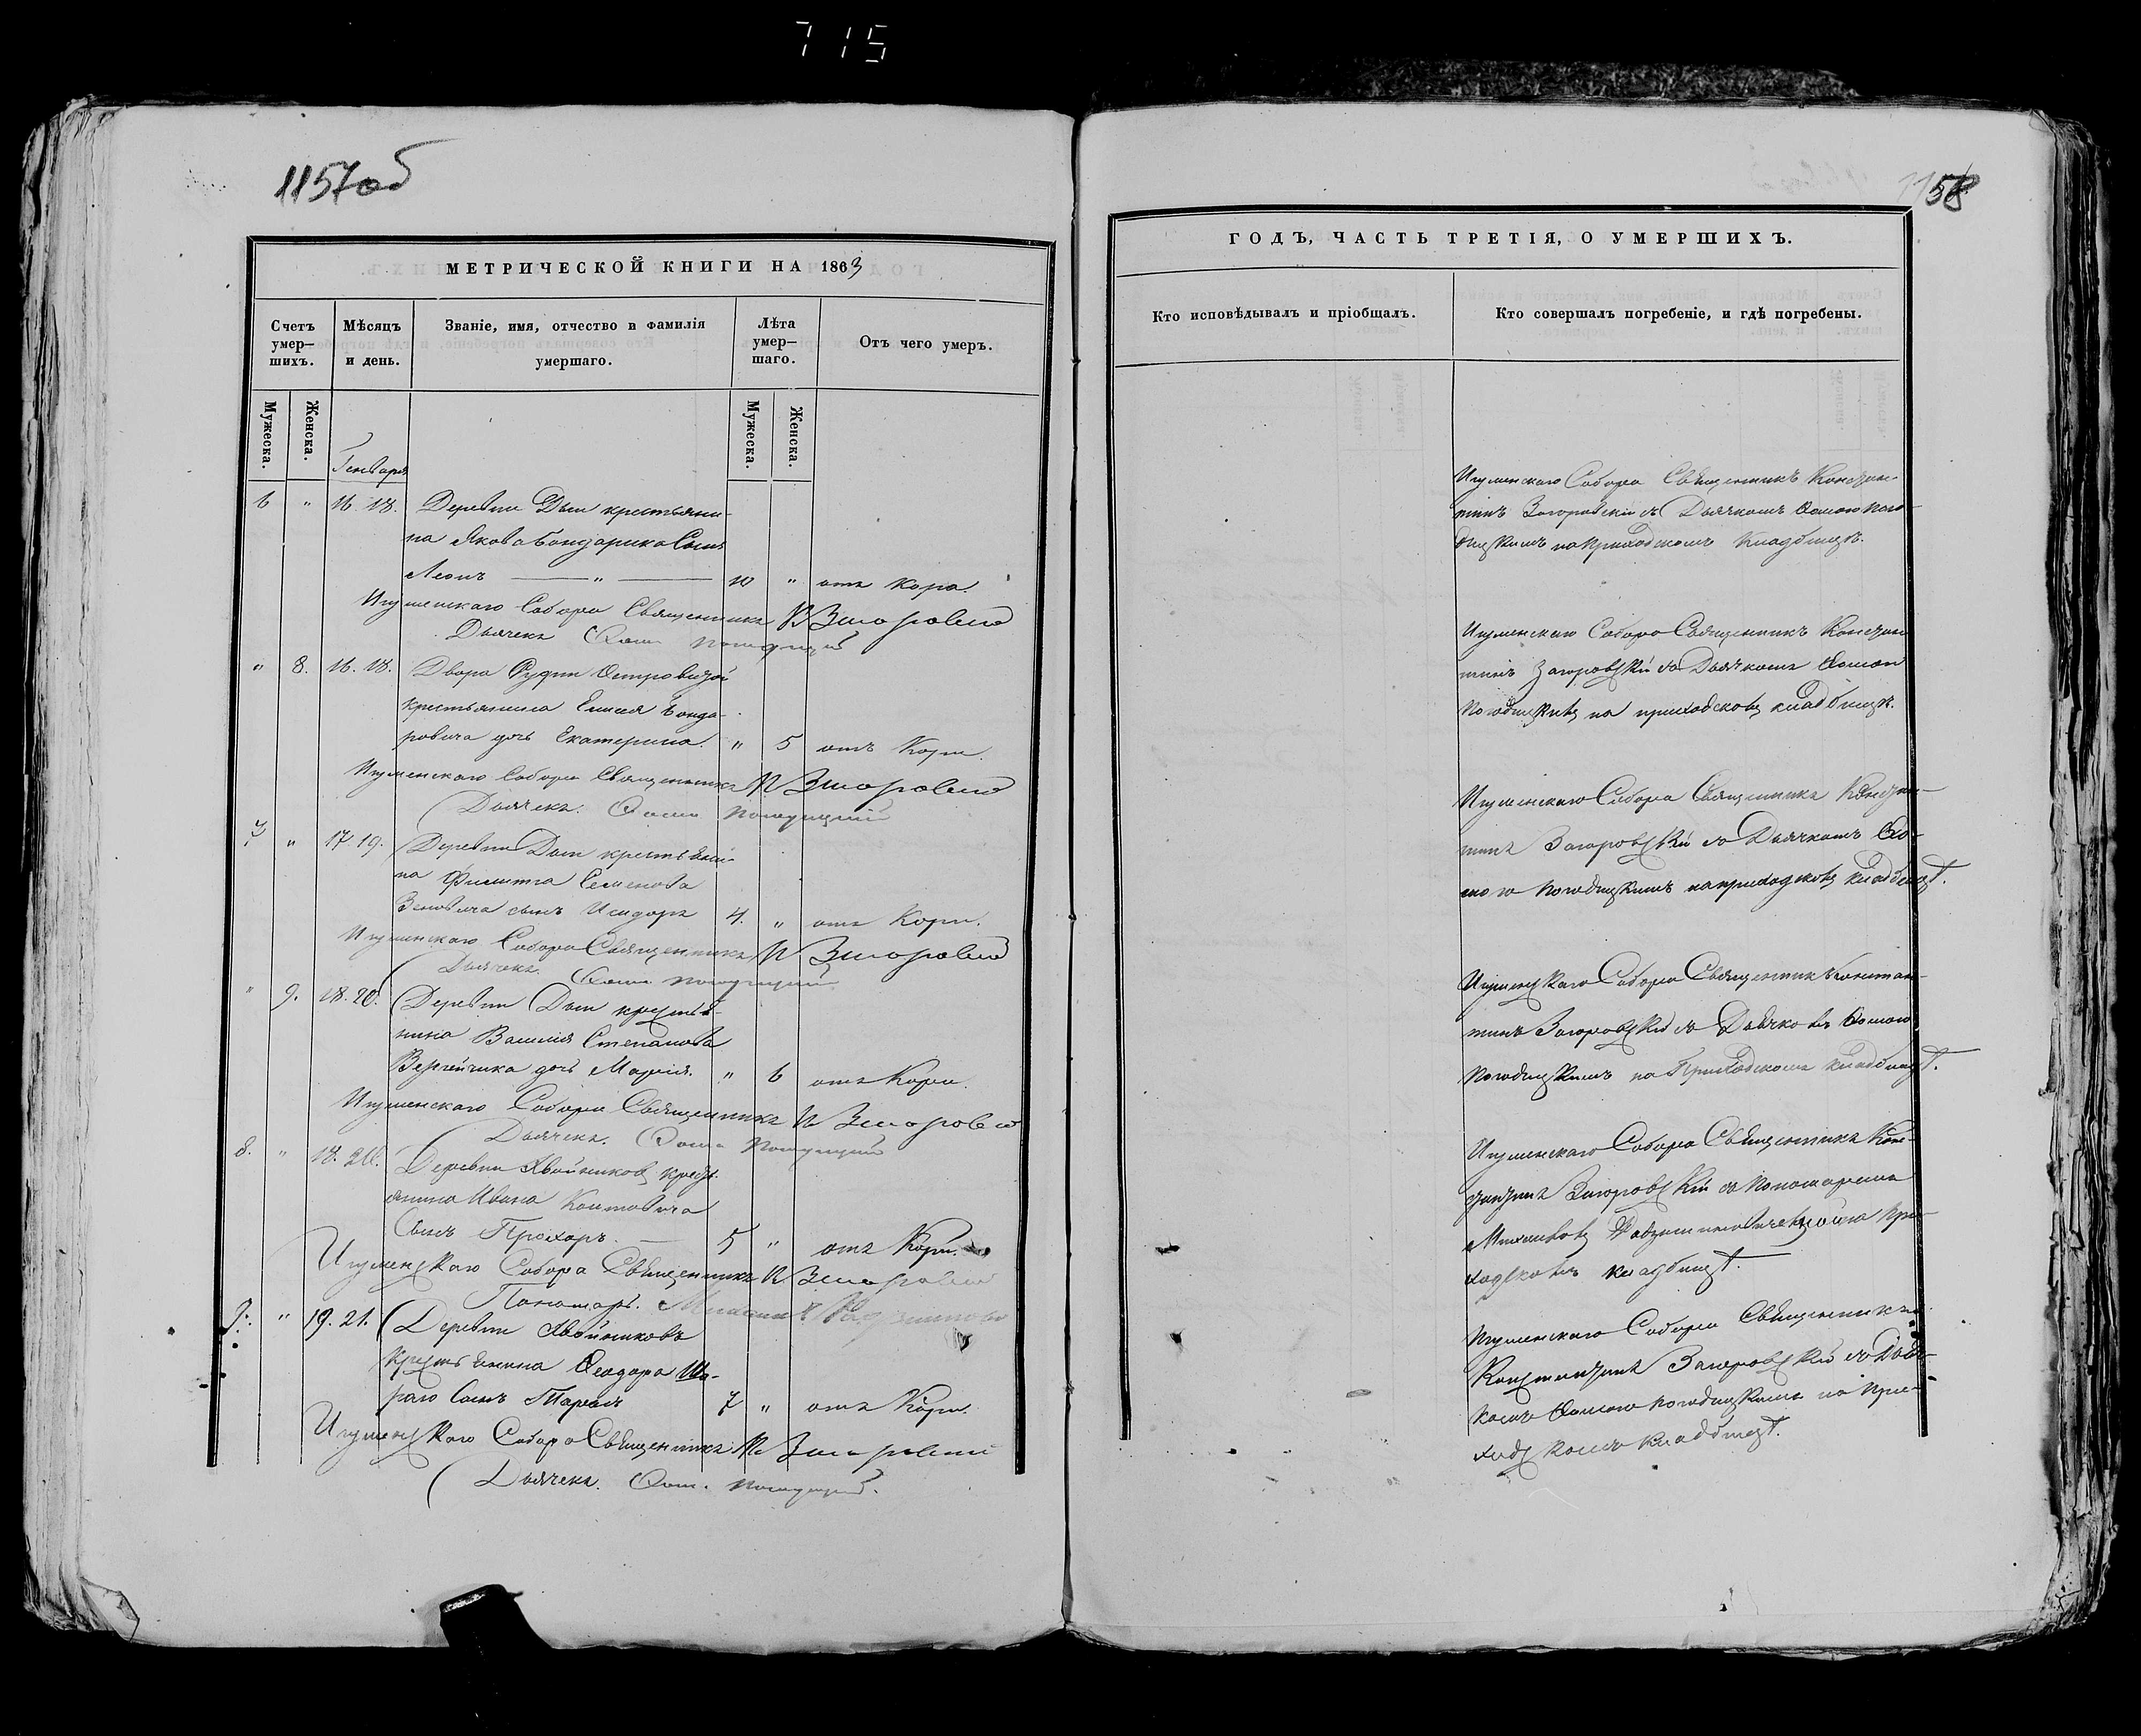 715
1157об
МЕТРИЧЕСКОЙ КНИГИ НА 1863
Счетъ умер-шихъ.
Мѣсяцъ и день.
Званіе, имя, отчество и фамилія умершаго.
Лѣта умер-шаго.
Отъ чего умеръ.
Мужеска.
Женска.
Мужеска.
Женска.
Генваря
6 " 16 18. Деревни Дыи крестьяни-
на Якова Бондарика Сынъ
Леонъ — " — 10 " отъ Кора.
Игуменскаго Собора Священникъ К Загоровскій
Дьячекъ Ѳома
" 8. 16. 18. Двора
крестьянина Бонда-
ровича дочь Екатерина. " 5 отъ Кори.
Игуменскаго Собора Священникъ К Загоровскій
Дьячекъ. Ѳома
7 " 17 19. Деревни Дыи крестьяни-
на Филиппа Семенова
Зеновича сынъ Исидоръ 4. " отъ Кори.
Игуменскаго Собора Священникъ К Загоровскій
Дьячекъ. Ѳома
" 9. 18. 20. Деревни Дыи крестья-
нина Василія Степанова
Вергейчика дочь Марія. " 6 отъ Кори.
Игуменскаго Собора Священникъ К Загоровскій
Дьячекъ. Ѳома
8. " 18. 20. Деревни Хвойниковъ крест.
янина Ивана
Сынъ Прохоръ. — 5 " отъ Кори.
Игуменскаго Собора Священникъ К Загоровскій
Пономарь. Михаилъ
9. " 19. 21. Деревни Хвойниковъ
крестьянина Ѳеодора Ша-
раго Сынъ 7 " отъ Кори.
Игуменскаго Собора Священникъ К Загоровскій
Дьячекъ. Ѳом.
58
ГОДЪ, ЧАСТЬ ТРЕТІЯ, О УМЕРШИХЪ.
Кто исповѣдывалъ и пріобщалъ.
Кто совершалъ погребеніе, и гдѣ погребены.
Игуменскаго Собора Священникъ Констан-
тинъ Загоровскій съ Дьячкомъ Ѳомою
на приходскомъ кладбищѣ.
Игуменскаго Собора Священникъ Констан
тинъ Загоровскій съ Дьячкомъ Ѳомою
на приходскомъ кладбищѣ.
Игуменскаго Собора Священникъ Констан-
тинъ Загоровскій съ Дьячкомъ Ѳо-
мою на приходскомъ кладбищѣ.
Игуменскаго Собора Священникъ Констан-
тинъ Загоровскій съ Дьячкомъ Ѳомою
на Приходскомъ кладбищѣ.
Игуменскаго Собора Священникъ Кон-
стантинъ Загоровскій съ пономаремъ
Михаиломъ на при-
ходскомъ кладбищѣ.
Игуменскаго Собора Священникъ
Константинъ Загоровскій съ Дьяч-
комъ Ѳомою на при-
ходскомъ кладбищѣ.